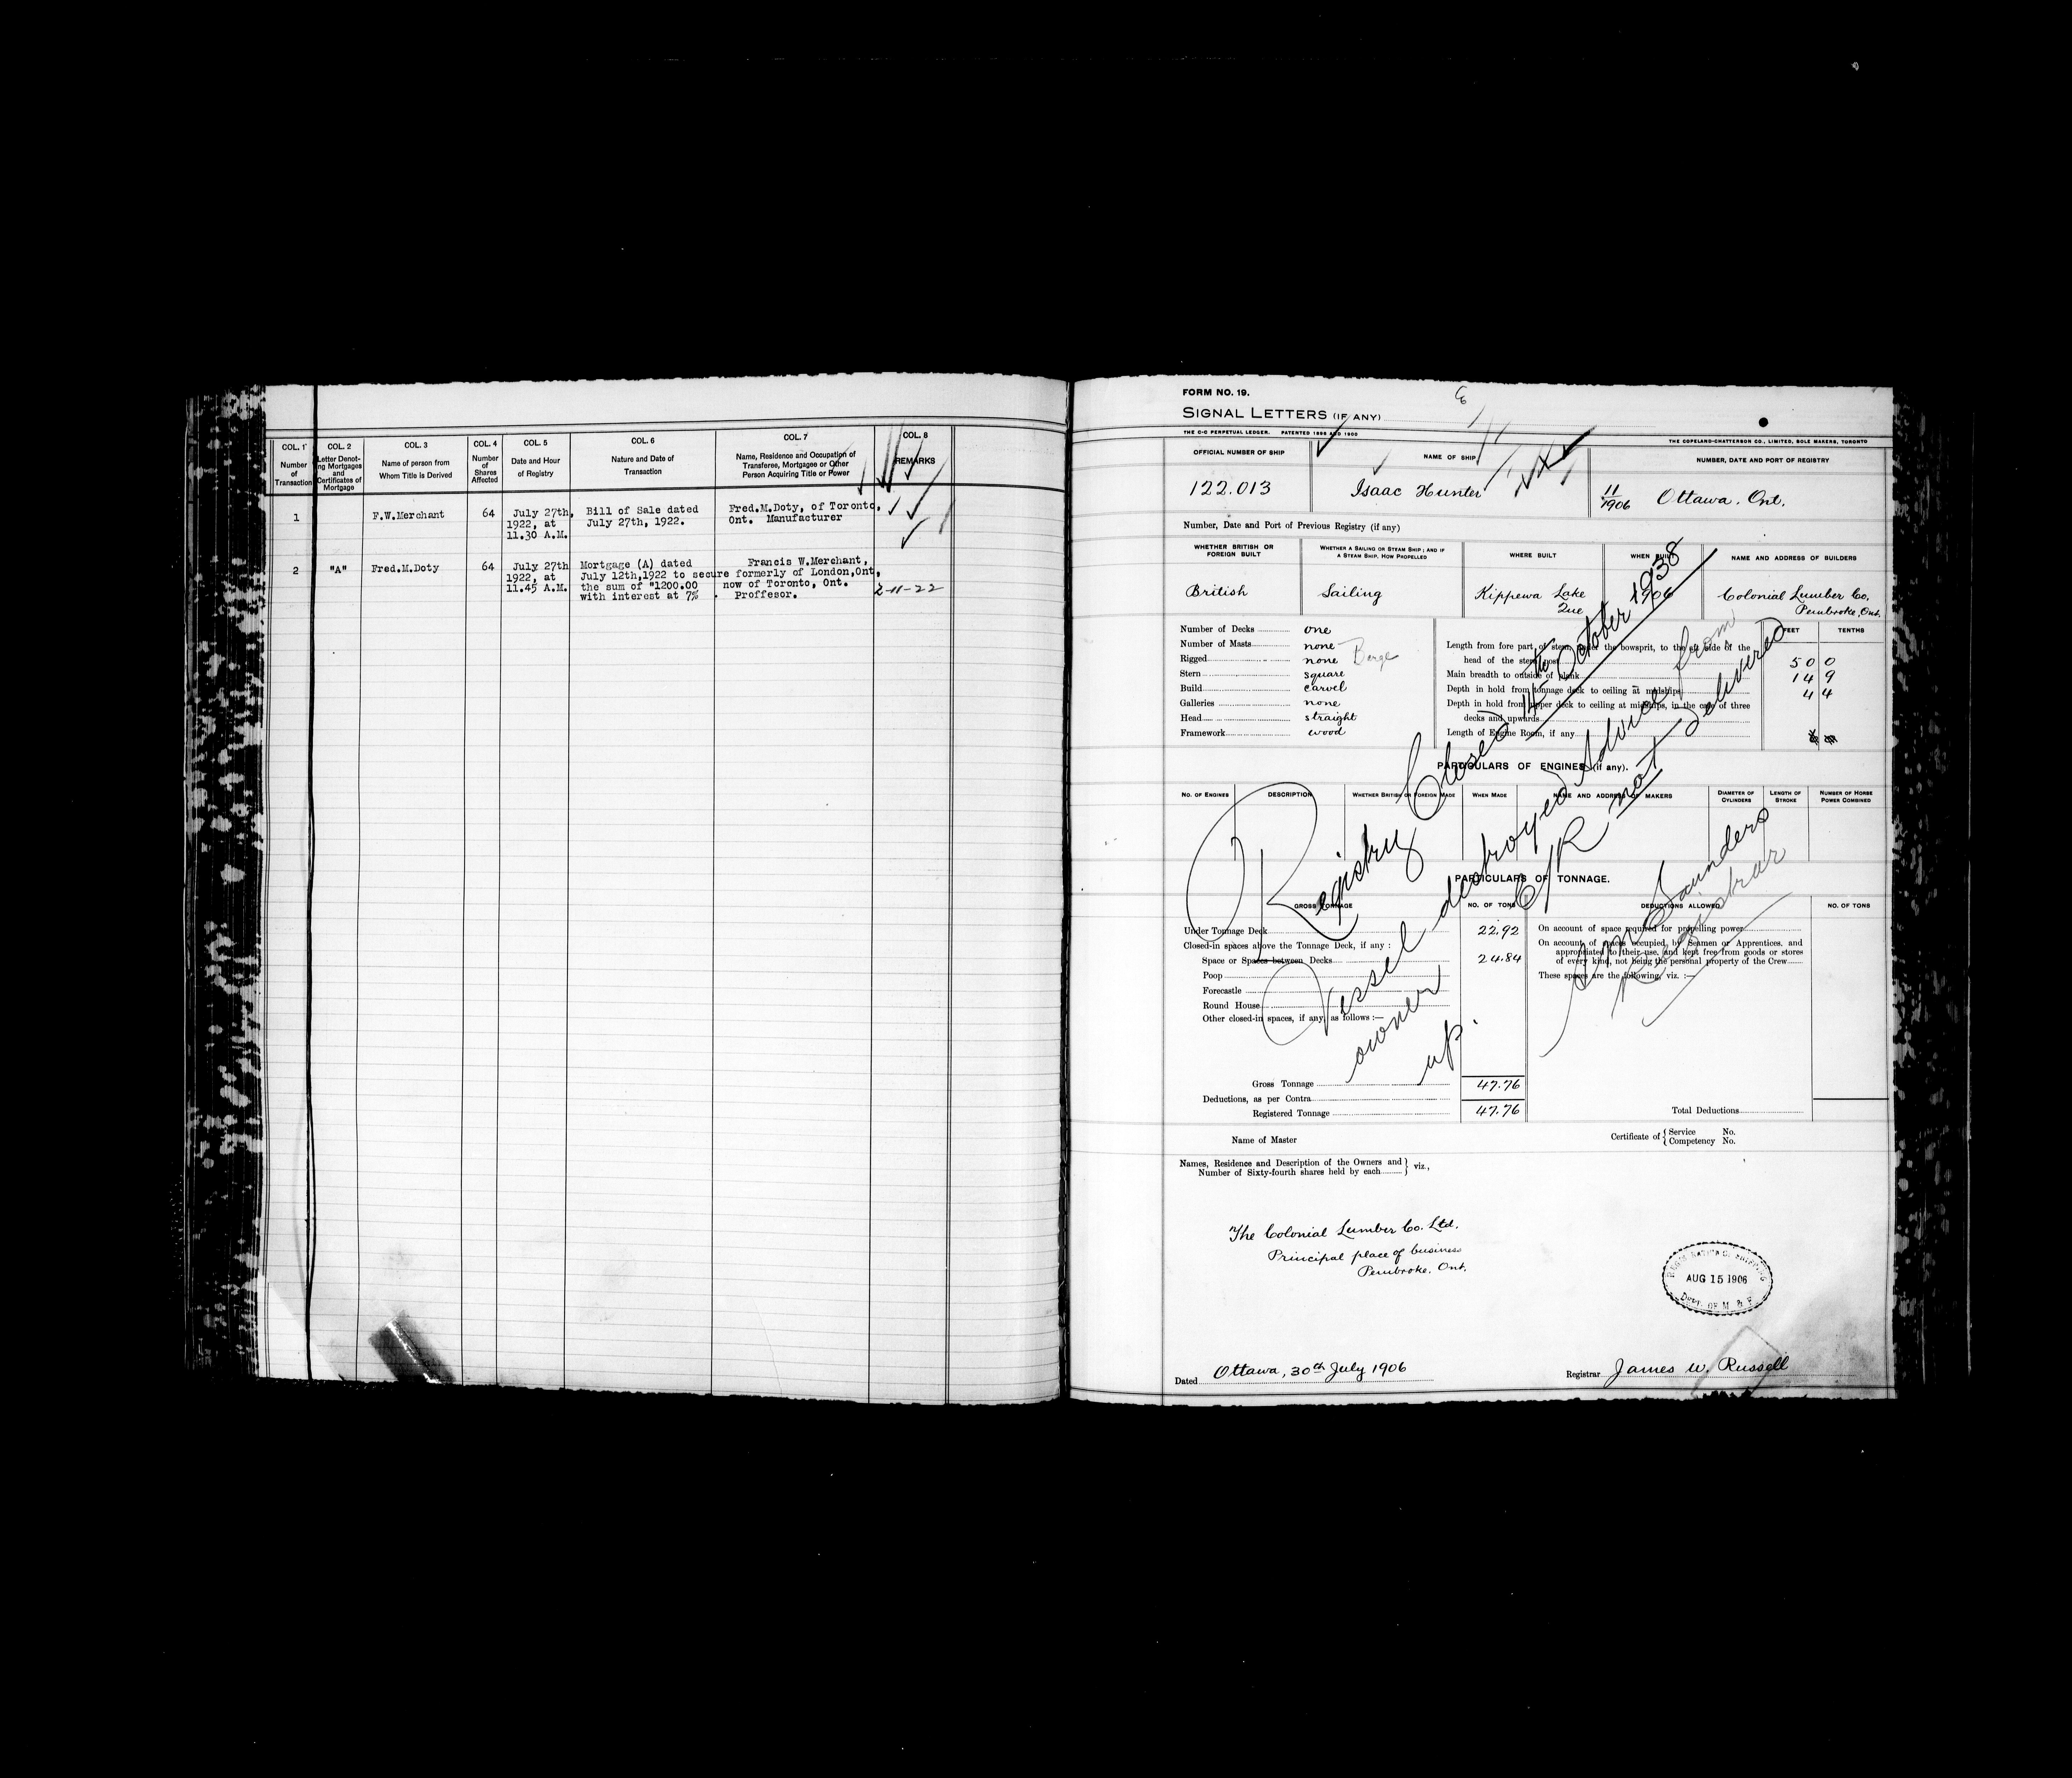 COL. 1
Number
of
Transaction
COL. 2
Letter Denot-
ing Mortgages
and
Certificates of
Mortgage
COL. 3
Name of person from
Whom Title is Derived
COL. 4
Number
of
Shares
Affected
COL. 5
Date and Hour
of Registry
COL. 6
Nature and Date of
Transaction
COL. 7
Name, Residence and Occupation of
Transferee, Mortgagee or Other
Person Acquiring Title or Power
COL. 8
REMARKS
1
F.W.Merchant
64
July 27th,
1922, at
11.30 A.M.
Bill of Sale dated
July 27th, 1922.
Fred.M.Doty, of Toronto,
Ont. Manufacturer
2
"A"
Fred.M.Doty
64
July 27th
1922, at
11.45 A.M.
Mortgage (A) dated
July 12th,1922 to secure
the sum of "1200.00
with interest at 7% .
Francis W.Merchant,
formerly of London,Ont,
now of Toronto, Ont.
Proffesor.
2-11-22
FORM NO. 19.
SIGNAL LETTERS (IF ANY)
THE C-C PERPETUAL LEDGER. PATENTED 1896 AND 1900
THE COPELAND-CHATTERSON CO., LIMITED, SOLE MAKERS, TORONTO
OFFICIAL NUMBER OF SHIP
NAME OF SHIP
NUMBER, DATE AND PORT OF REGISTRY
122.013
Isaac Hunter
11/1906 Ottawa. Ont.
Number, Date and Port of Previous Registry (if any)
WHETHER BRITISH OR
FOREIGN BUILT
WHETHER A SAILING OR STEAM SHIP; AND IF
A STEAM SHIP, HOW PROPELLED
WHERE BUILT
WHEN BUILT
NAME AND ADDRESS OF BUILDERS
British
Sailing
Kippewa Lake
Que
1906
Colonial Lumber Co,
Pembroke, Ont.
Number of Decks one
Number of Masts none
Rigged none Barge
Stern square
Build carvel
Galleries none
Head straight
Framework wood
FEET TENTHS
Length from fore part of stem, under the bowsprit, to the aft side of the
head of the stern post 50 0
Main breadth to outside of plank 14 9
Depth in hold from tonnage deck to ceiling at midships 4 4
Depth in hold from upper deck to ceiling at midships, in the case of three
decks and upwards
Length of Engine Room, if any
PARTICULARS OF ENGINES (if any).
NO. OF ENGINES
DESCRIPTION
WHETHER BRITISH OR FOREIGN MADE
WHEN MADE
NAME AND ADDRESS OF MAKERS
DIAMETER OF
CYLINDERS
LENGTH OF
STROKE
NUMBER OF HORSE
POWER COMBINED
Registry Closed 14th October 1938
Vessel destroyed Advice from
owner C/R not delivered
up.
Saunders
Registrar
PARTICULARS OF TONNAGE.
GROSS TONNAGE
NO. OF TONS
DEDUCTIONS ALLOWED
NO. OF TONS
Under Tonnage Deck 22.92
Closed-in spaces above the Tonnage Deck, if any :
Space or Spaces between Decks 24.84
Poop
Forecastle
Round House
Other closed-in spaces, if any, as follows :—
On account of space required for propelling power
On account of spaces occupied by Seamen or Apprentices, and
appropriated to their use, and kept free from goods or stores
of every kind, not being the personal property of the Crew
These spaces are the following, viz. :—
Gross Tonnage 47.76
Deductions, as per Contra
Registered Tonnage 47.76
Total Deductions
Name of Master
Certificate of { Service No.
Competency No.
Names, Residence and Description of the Owners and
Number of Sixty-fourth shares held by each } viz.,
The Colonial Lumber Co. Ltd.
Principal place of business
Pembroke. Ont.
AUG 15 1906
DEPT. OF M. & F.
Dated Ottawa, 30th July 1906
Registrar James W. Russell